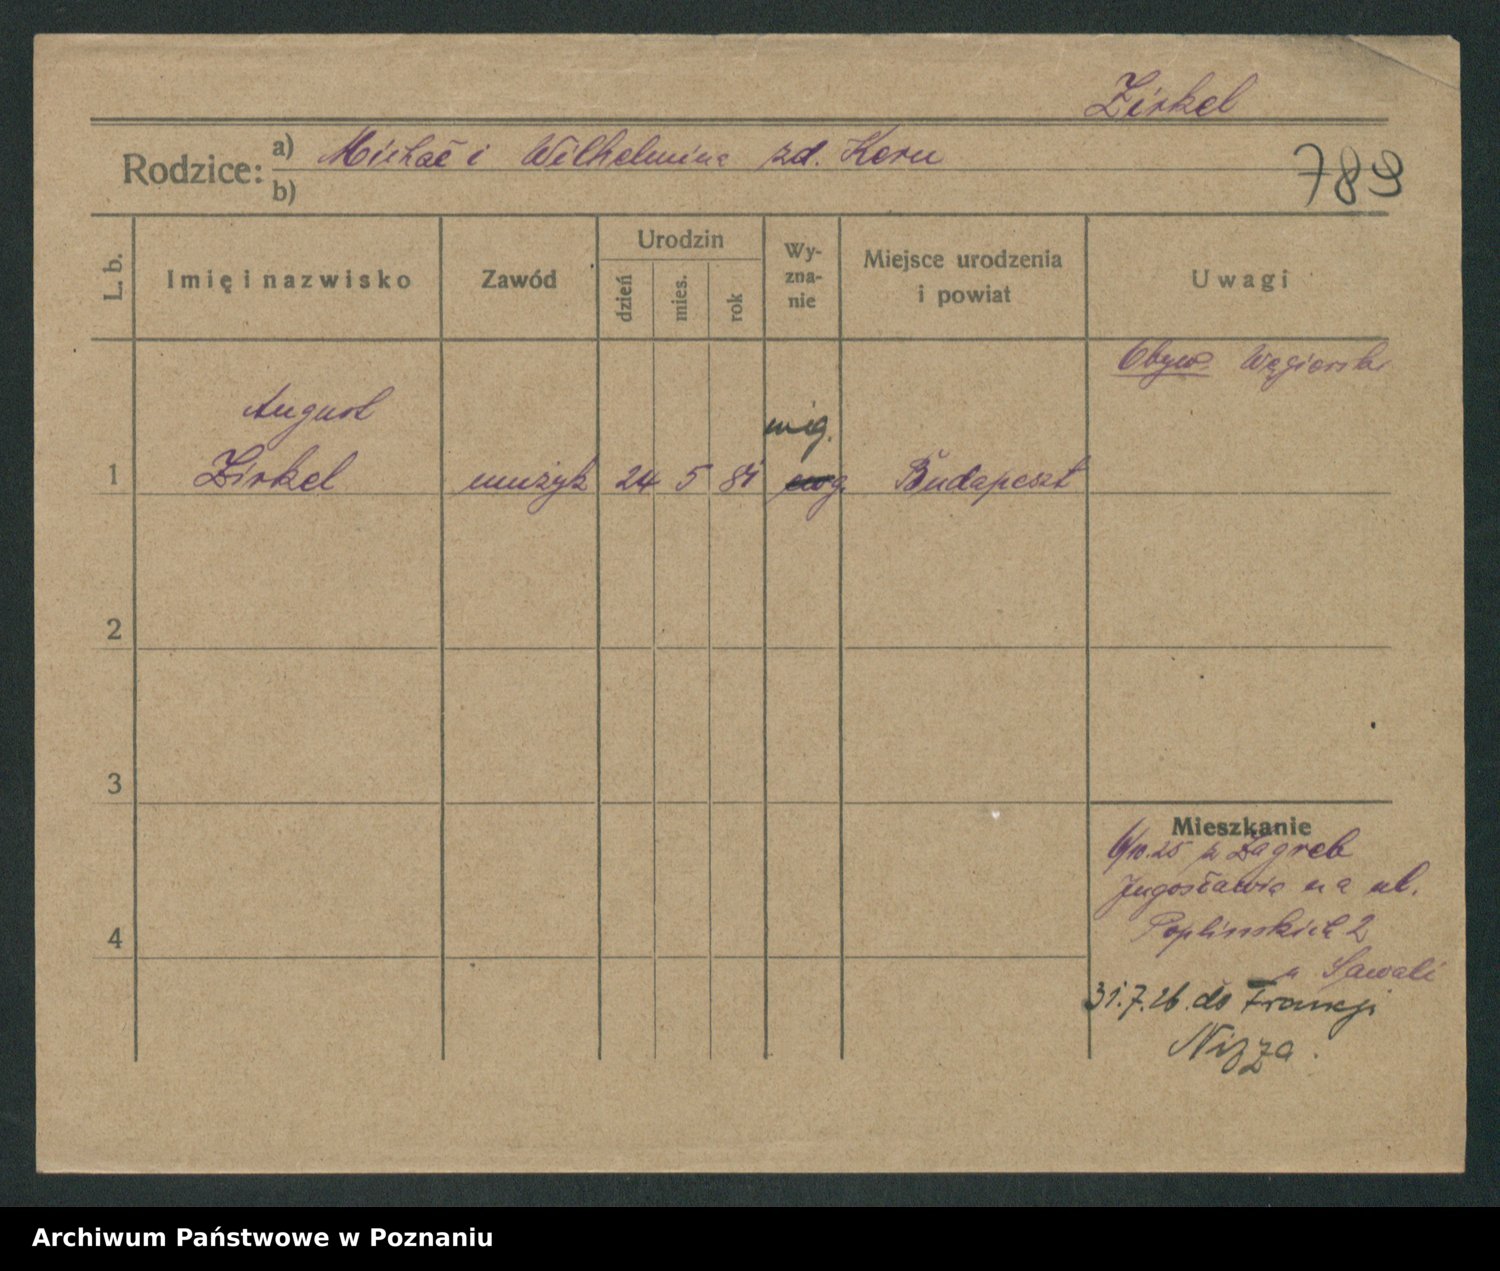 Zirkel
Rodzice: a) Michał i Wilhelmina zd. Kern
b)
789
L. b.
Imię i nazwisko
Zawód
Urodzin
dzień
mies.
rok
Wy-
zna-
nie
Miejsce urodzenia
i powiat
Uwagi
Obyw. Węgierski
August
mig.
1 Zirkel muzyk 24 5 81 ewg. Budapeszt
2
3
4
Mieszkanie
6/10.25 z Zagreb
Jugosławia na ul.
Poplinskich 2
u Sawali
31.7.26. do Francji
Nizza.
Archiwum Państwowe w Poznaniu